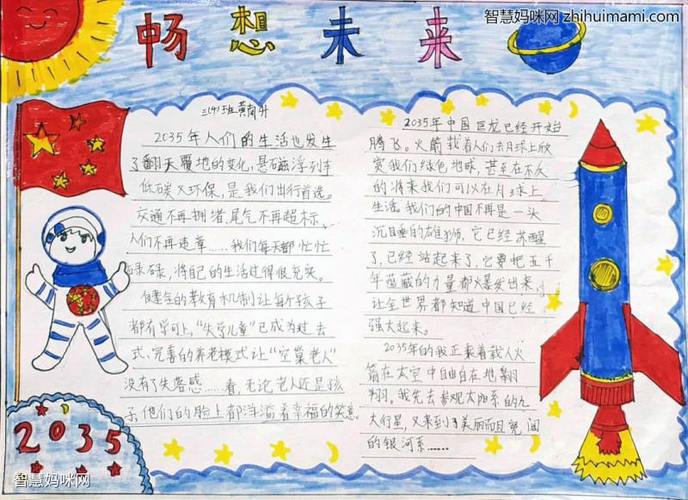 智慧妈咪网 zhihuimami.com
畅想未来
2035年人们的生活也发生
了翻天覆地的变化,悬磁浮列车
低碳又环保,是我们出行首选。
交通不再拥堵,尾气不再超标,
人们不再违章……我们每天都忙忙
碌碌,将自己的生活过得很充实。
健全的教育机制让每个孩子
都有学可上,“失学儿童”已成为过去
式,完善的养老模式让“空巢老人”
没有了失落感……看,无论老人还是孩
子,他们的脸上都洋溢着幸福的笑意。
2035年中国巨龙已经开始
腾飞。火箭载着人们去月球上欣
赏我们绿色地球,甚至在不久
的将来我们可以在月球上
生活。我们的中国不再是一头
沉睡的雄狮,它已经苏醒
了,已经站起来了,它要把五千
年蕴藏的力量都火暴发出来,
让全世界都知道中国已经
强大起来。
2035年的我正乘着载人火
箭在太空中自由自在地翱
翔,我先去参观太阳系的九
大行星,又来到了美丽而且宽阔
的银河系……
2035
智慧妈咪网